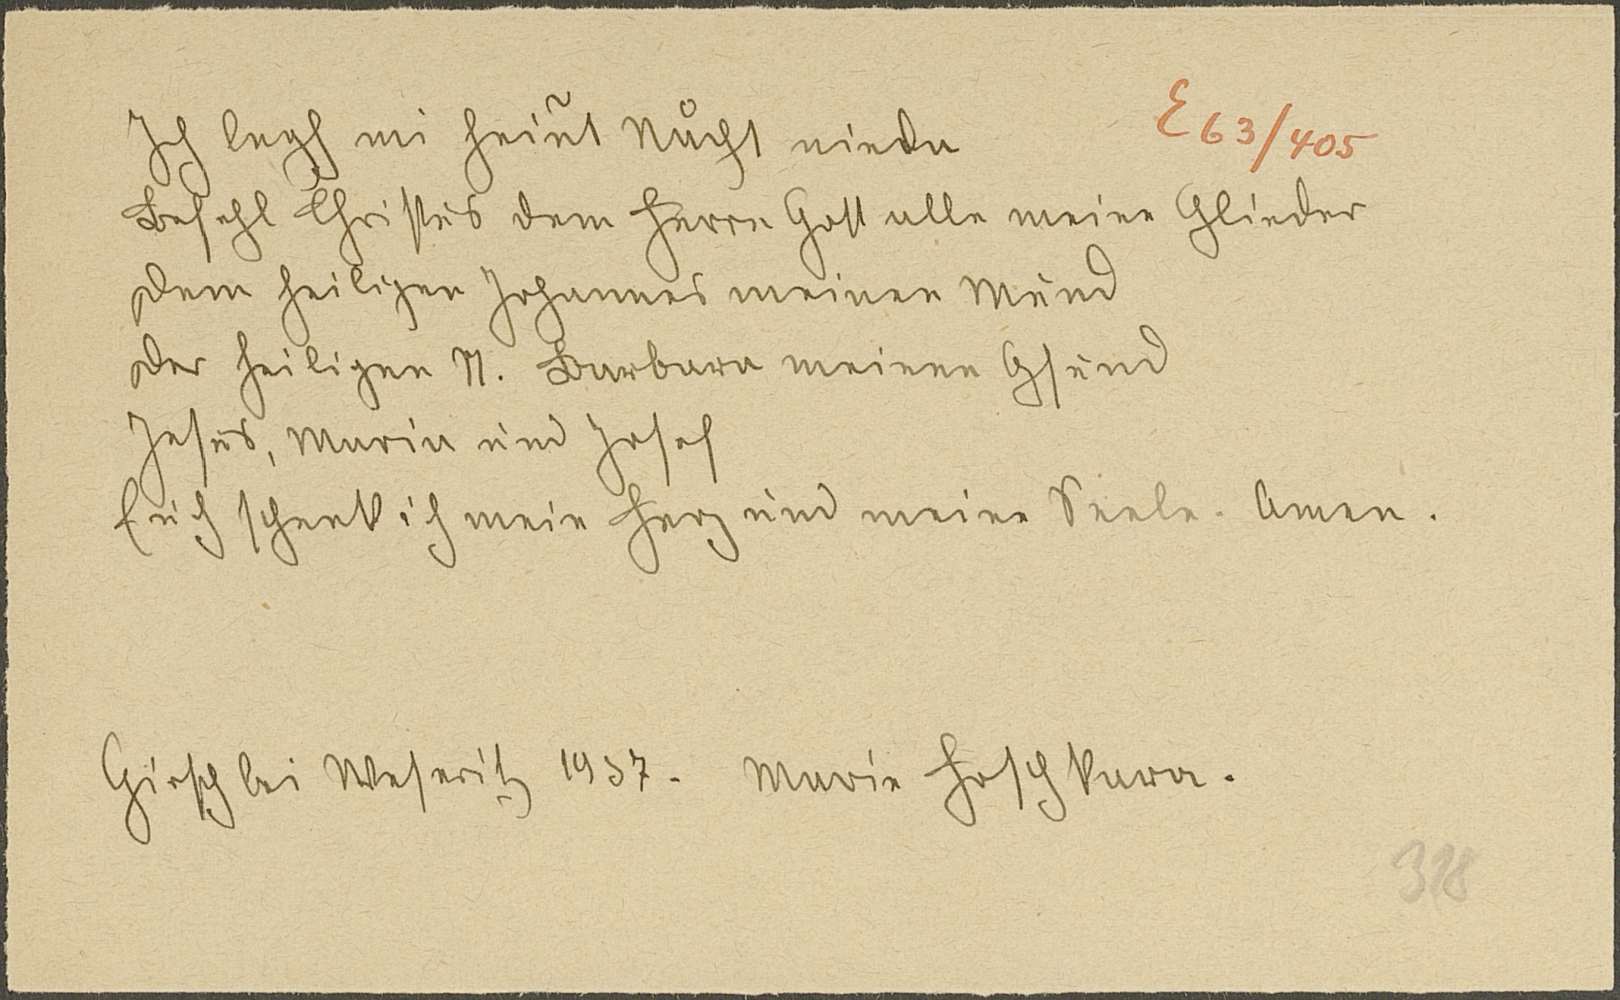 Ich legh mi heiñt Nåcht nieda
E 63/405
Befehl Christus dem Herrn Gott alle meine Glieder
Dem heiligen Johannes meinen Mund
Der heiligen N. Barbara meinen Gsund
Jesus, Maria und Josef
Euch schenk ich mein Herz und meine Seele. Amen.
Girsch bei Weseritz 1937. Marie Hoschkara.
318